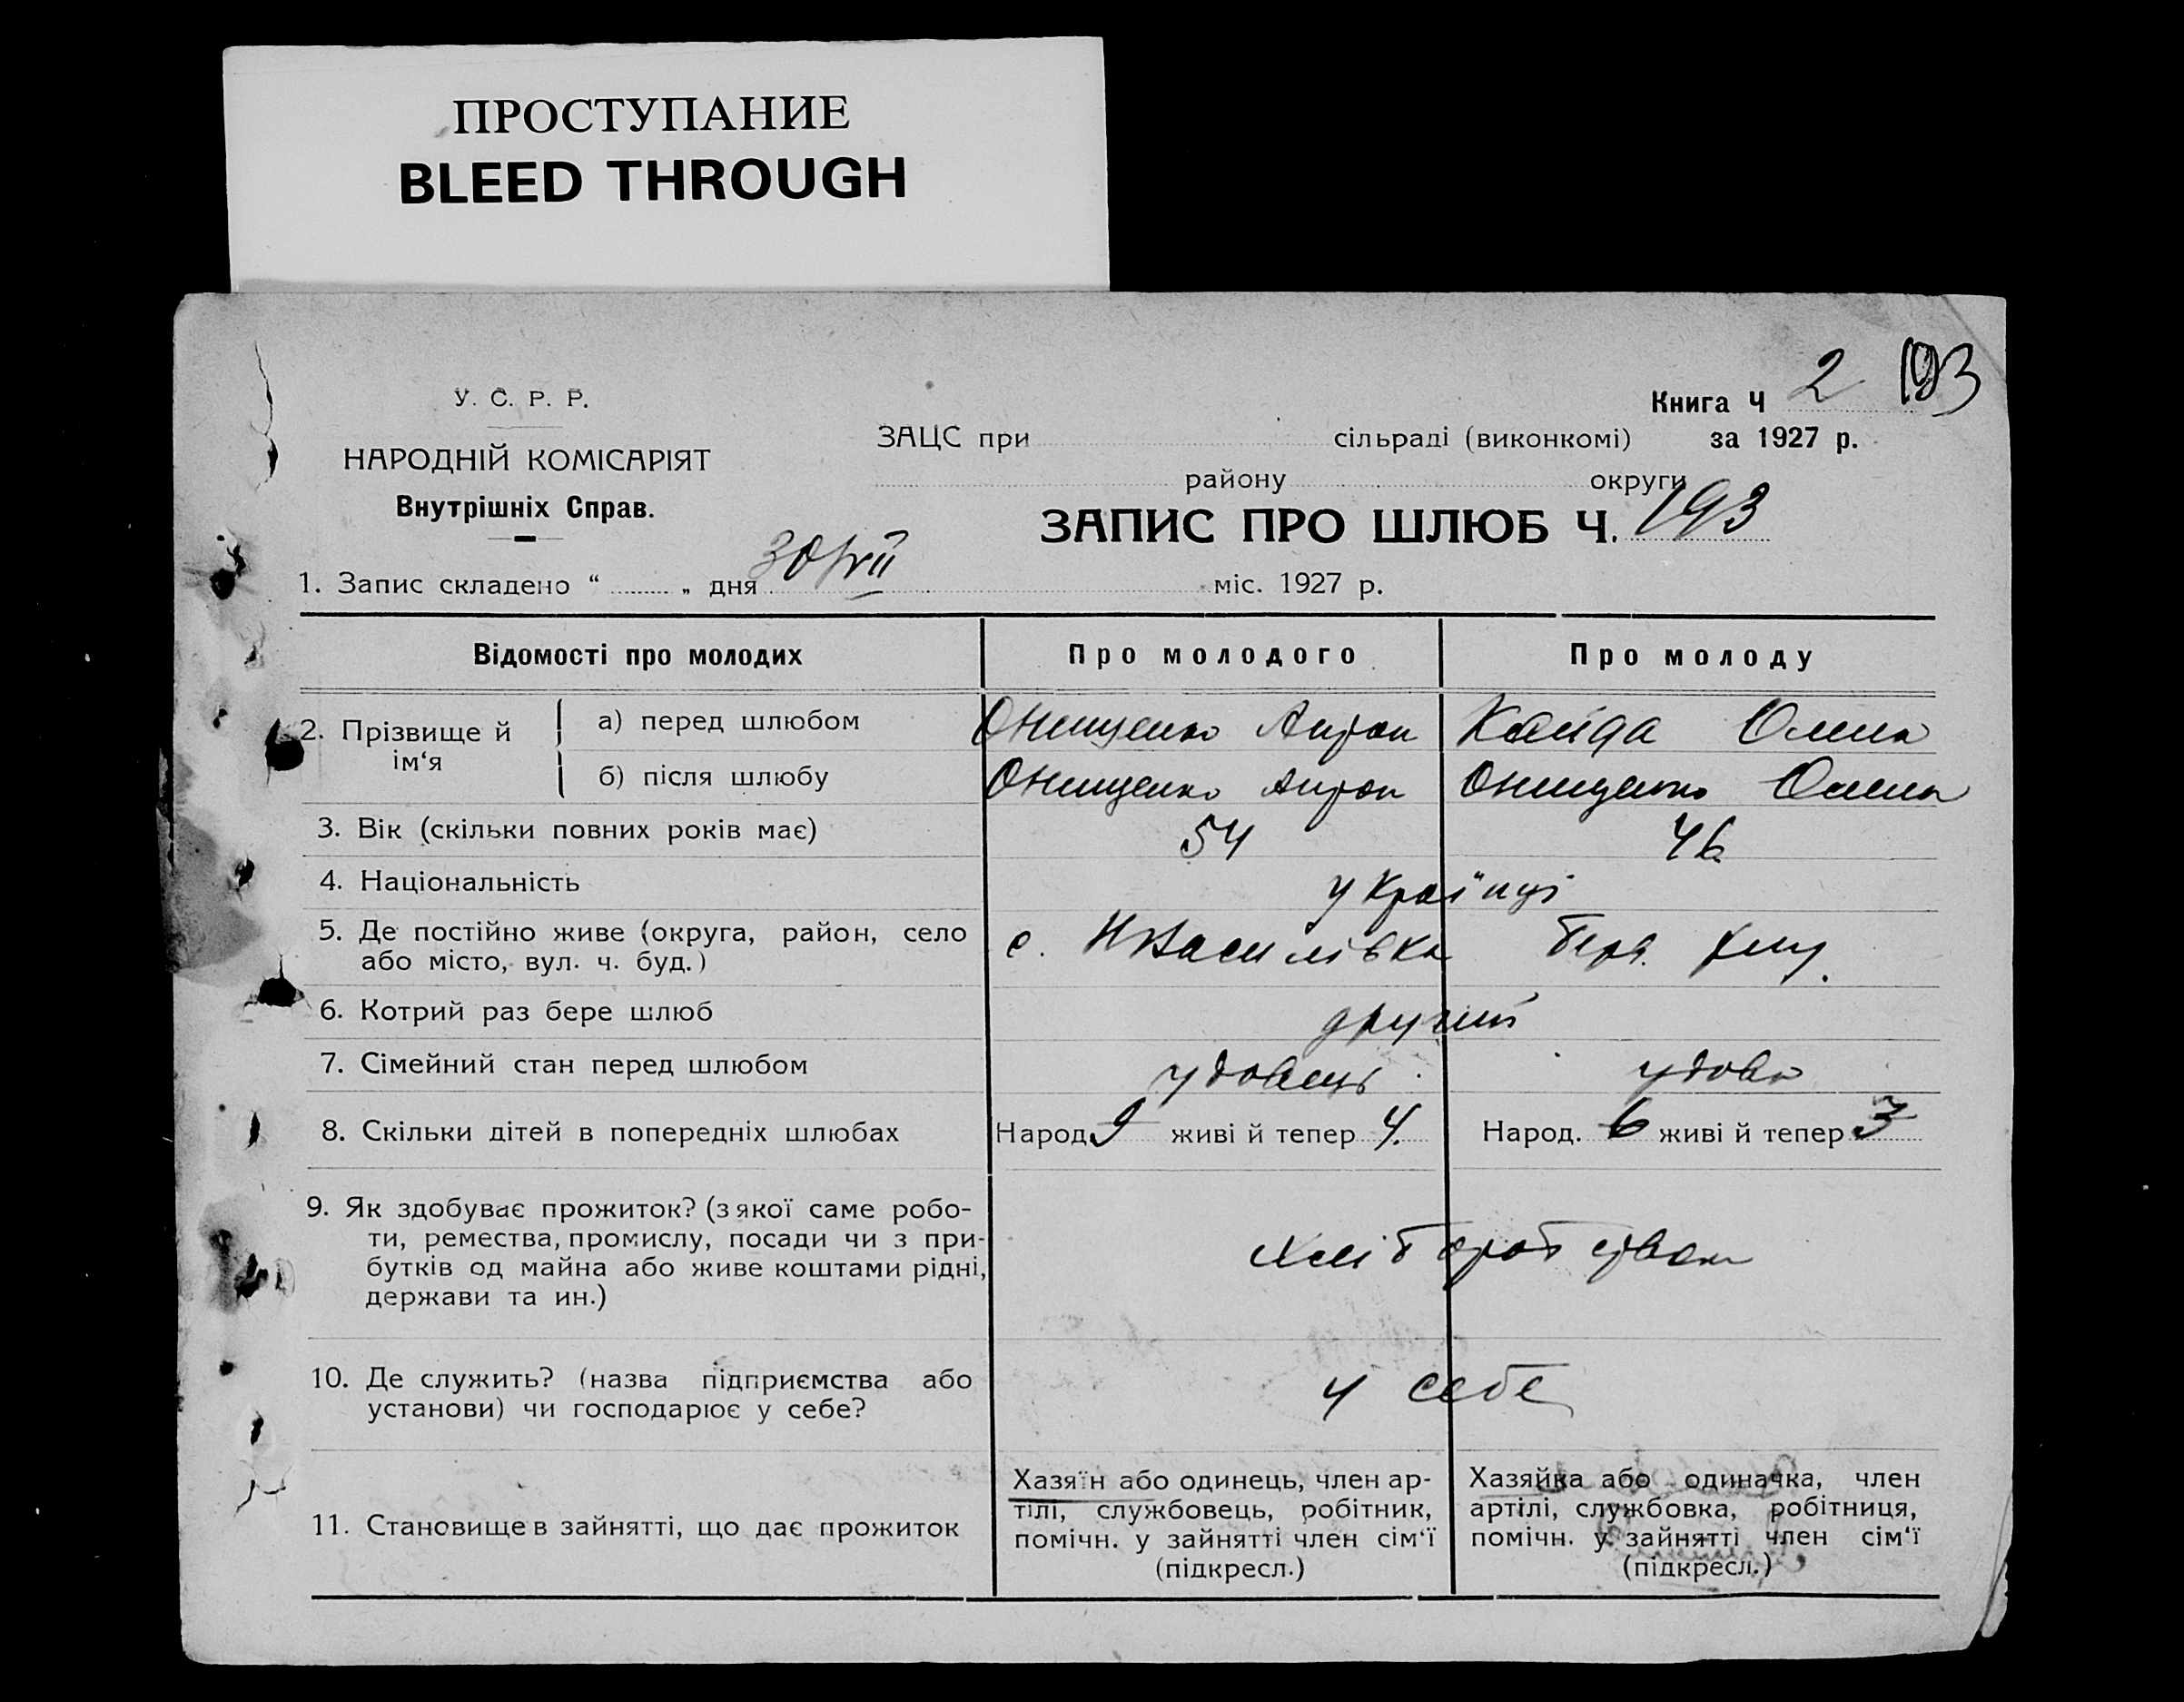 ПРОСТУПАНИЕ
BLEED THROUGH
193
Книга Ч 2
У. С. Р. Р.
ЗАЦС при сільраді (виконкомі) за 1927 р.
НАРОДНІЙ КОМІСАРІЯТ
району округи
Внутрішніх Справ.
ЗАПИС ПРО ШЛЮБ Ч. 193
1. Запис складено “ „ дня 30/VII міс. 1927 р.
Відомості про молодих Про молодого Про молоду
2. Прізвище й ім‘я
а) перед шлюбом Онищенко Антон Кайда Олена
б) після шлюбу Онищенко Антон Онищенко Олена
3. Вік (скільки повних років має) 54 46
4. Національність українці
5. Де постійно живе (округа, район, село
або місто, вул. ч. буд.) с. НВасилівка
6. Котрий раз бере шлюб другий
7. Сімейний стан перед шлюбом удовець удова
8. Скільки дітей в попередніх шлюбах Народ. 9 живі й тепер 4. Народ. 6 живі й тепер 3
9. Як здобуває прожиток? (з якої саме робо-
ти, ремества, промислу, посади чи з при-
бутків од майна або живе коштами рідні,
держави та ин.)
хліборобством
10. Де служить? (назва підприємства або
установи) чи господарює у себе?
у себе
11. Становище в зайнятті, що дає прожиток
Хазяїн або одинець, член ар-
тілі, службовець, робітник,
помічн. у зайнятті член сім‘ї
(підкресл.)
Хазяйка або одиначка, член
артілі, службовка, робітниця,
помічн. у зайнятті член сім‘ї
(підкресл.)